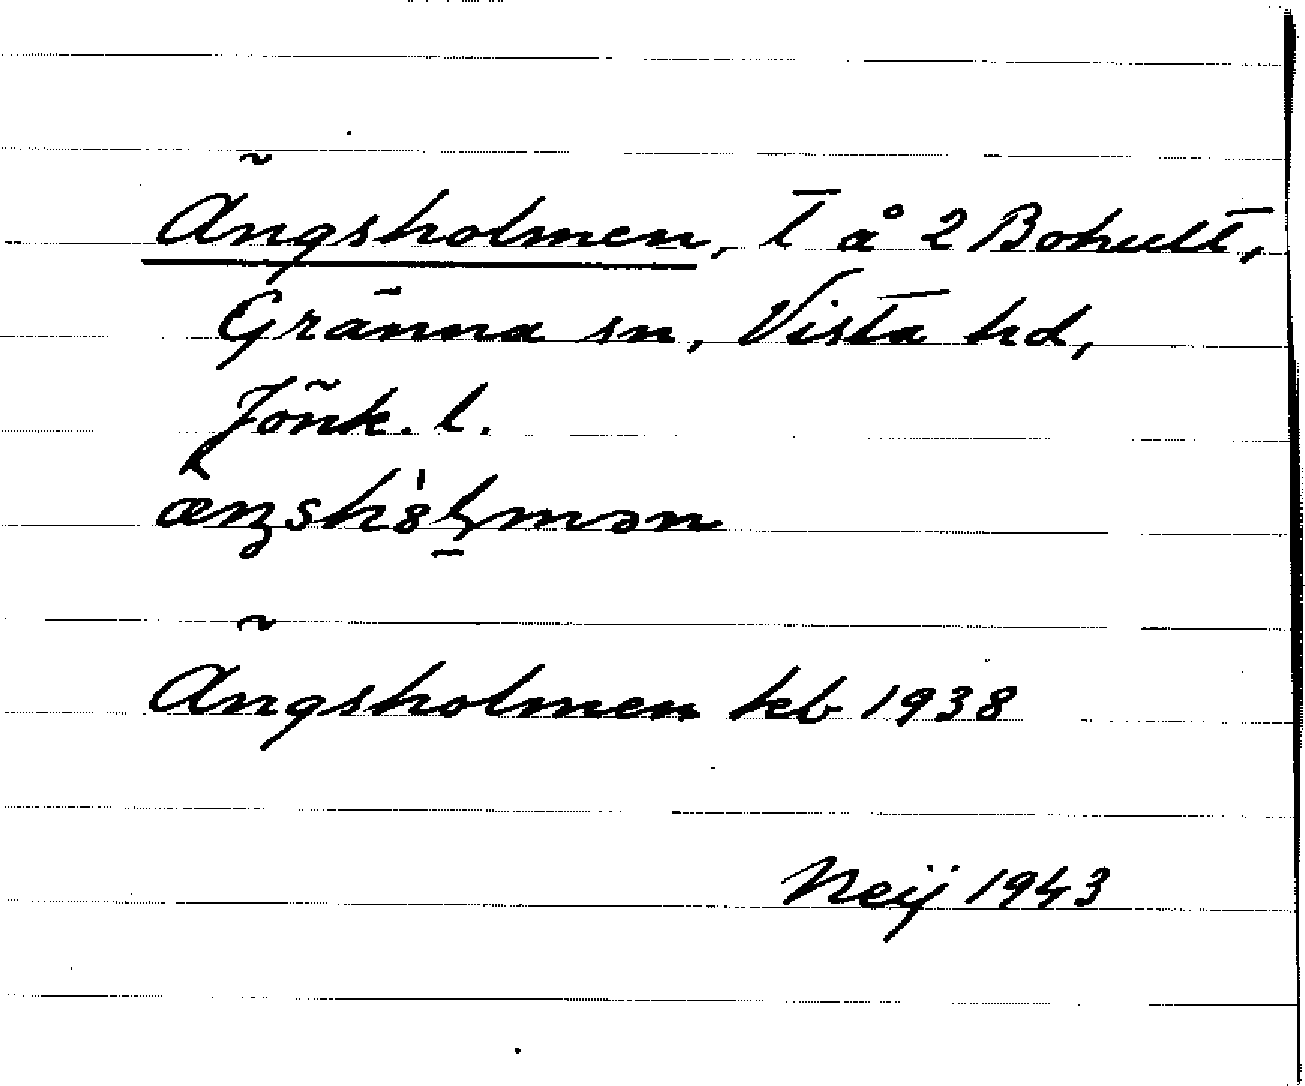 Ängsholmen, T å 2 Bohult,
Gränna sn, Vista hd,
Jönk. l.
Ängsholmen keb 1938
Neij 1943